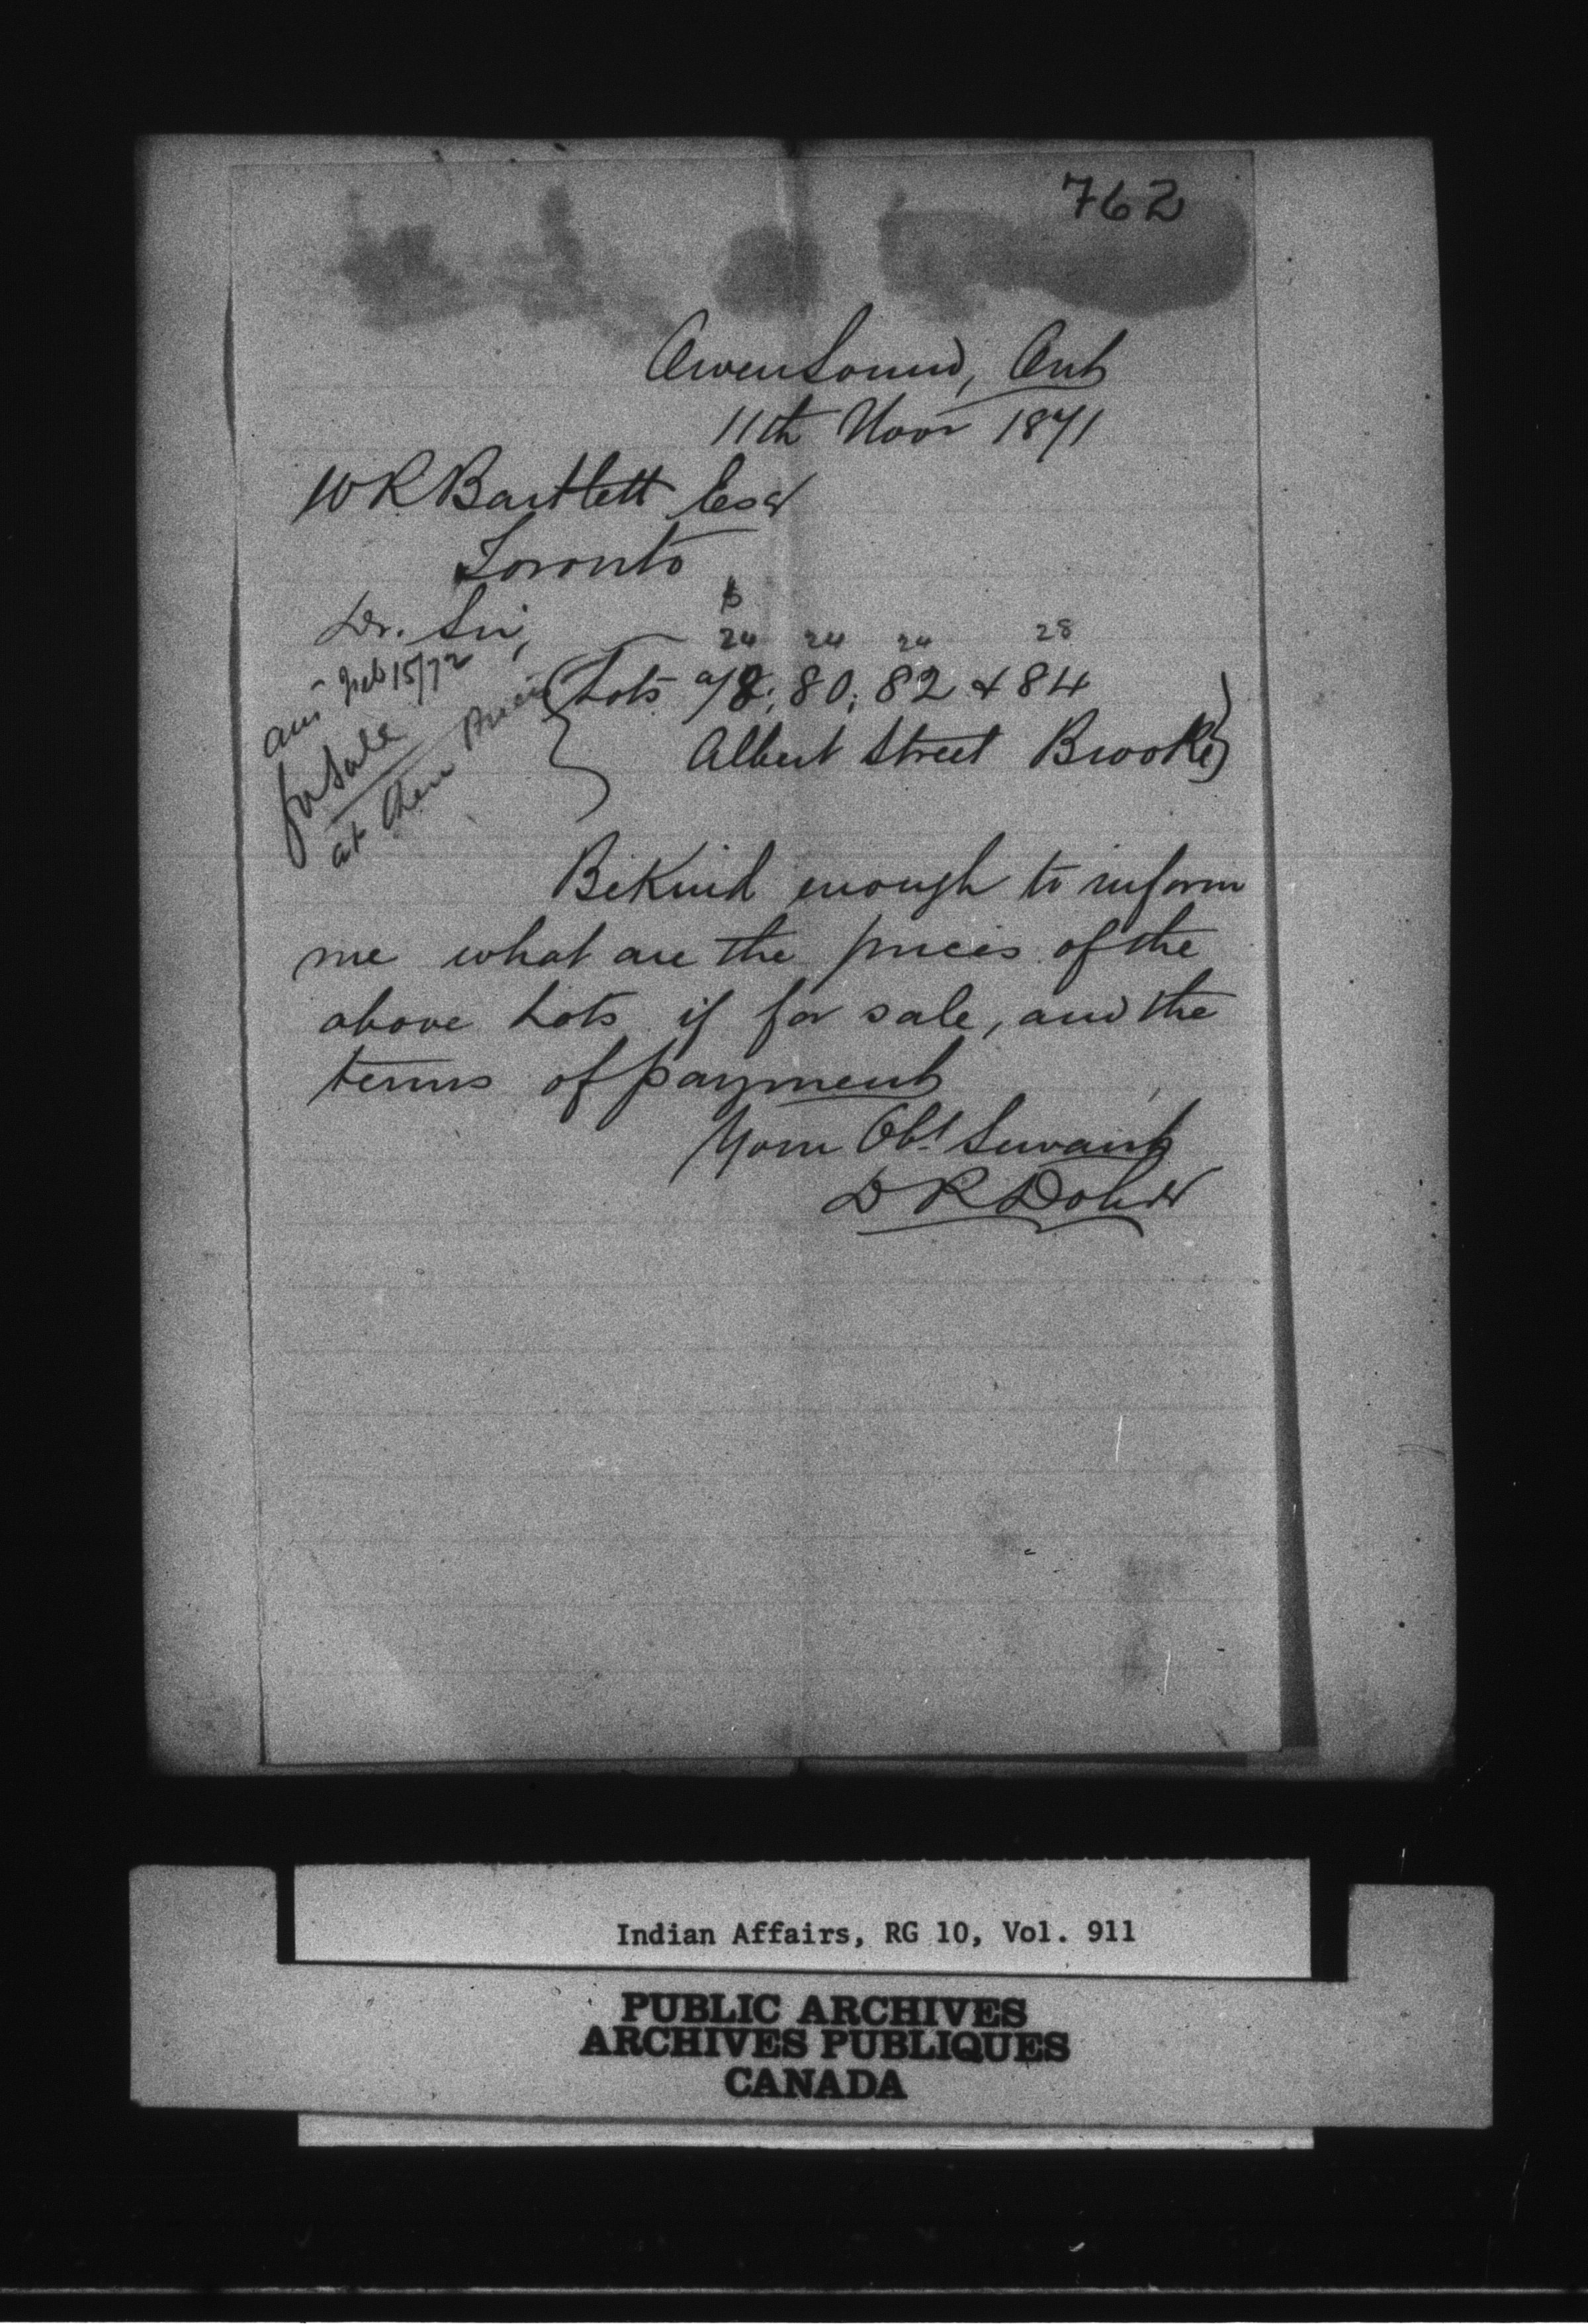 762
Owen Sound, Ont
11th Novr 1871
W R Bartlett Esqr
Toronto
Dr. Sir,
$
24 24 24 28
Lots 78; 80; 82 & 84
Albert Street Brooke
ans Feb 15/72
for Sale
at these Prices
Be Kind enough to inform
me what are the prices of the
above Lots if for sale, and the
terms of payment
Your Obt Servant
D R
Indian Affairs, RG 10, Vol. 911
PUBLIC ARCHIVES
ARCHIVES PUBLIQUES
CANADA